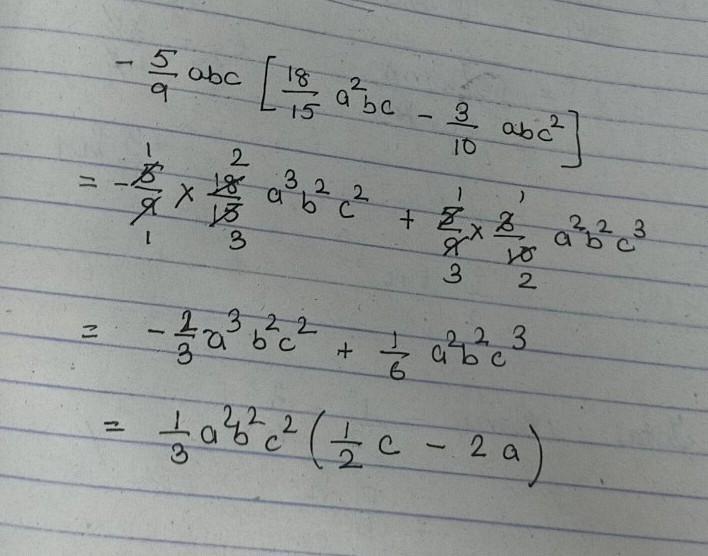 - 5/9 abc [ 18/15 a²bc - 3/10 abc² ]
= - 5/9 × 18/15 a³b²c² + 5/9 × 3/10 a²b²c³
= - 2/3 a³b²c² + 1/6 a²b²c³
= 1/3 a²b²c² ( 1/2 c - 2a )